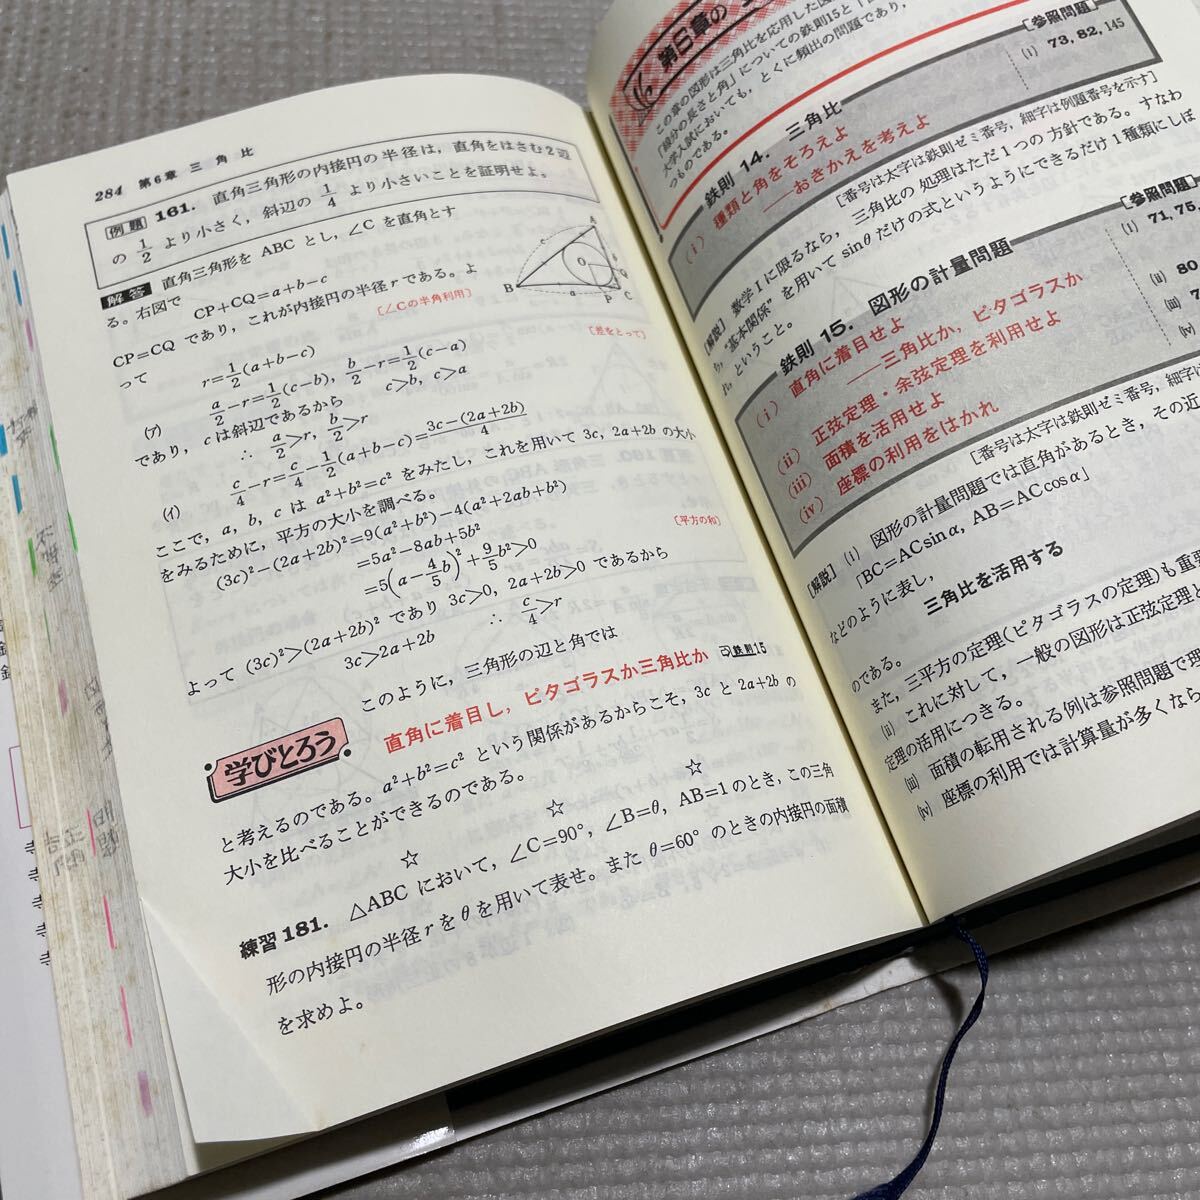 284 第6章 三角比
例題 161. 直角三角形の内接円の半径は，直角をはさむ2辺
の 1/2 より小さく，斜辺の 1/4 より小さいことを証明せよ。
解答 直角三角形を ABC とし，∠C を直角とす
る。右図で CP+CQ=a+b−c
CP=CQ であり，これが内接円の半径 r である。よ
って r=1/2(a+b−c) [∠Cの半角利用]
(ア) a/2−r=1/2(c−b), b/2−r=1/2(c−a) [差をとって]
であり，c は斜辺であるから c>b, c>a
∴ a/2>r, b/2>r
(イ) c/4−r=c/4−1/2(a+b−c)=3c−(2a+2b)/4
ここで，a, b, c は a²+b²=c² をみたし，これを用いて 3c, 2a+2b の大小
をみるために，平方の大小を調べる。
(3c)²−(2a+2b)²=9(a²+b²)−4(a²+2ab+b²) [平方の和]
=5a²−8ab+5b²
=5(a−4/5b)²+9/5b²>0
よって (3c)²>(2a+2b)² であり 3c>0, 2a+2b>0 であるから
3c>2a+2b ∴ c/4>r
学びとろう
このように，三角形の辺と角では
直角に着目し，ピタゴラスか三角比か 鉄則15
と考えるのである。a²+b²=c² という関係があるからこそ，3c と 2a+2b の
大小を比べることができるのである。
☆ ☆ ☆
練習 181. △ABC において，∠C=90°, ∠B=θ, AB=1 のとき，この三角
形の内接円の半径 r を θ を用いて表せ。また θ=60° のときの内接円の面積
を求めよ。
A
B
C
O
P
Q
a
c
第6章の
この章の図形は三角比を応用した
「線分の長さと角」についての鉄則15と
大学入試においても，とくに頻出の問題であり，
つものである。
鉄則 14. 三角比 [参照問題]
(i) 種類と角をそろえよ (i) 73, 82, 145
——おきかえを考えよ
[番号は太字は鉄則ゼミ番号，細字は例題番号を示す]
[解説] 数学Ⅰに限るなら，三角比の処理はただ1つの方針である。すなわ
ち，“基本関係”を用いて sinθ だけの式というようにできるだけ1種類にしぼ
れ，ということ。
鉄則 15. 図形の計量問題 [参照問題]
(i) 直角に着目せよ (i) 71, 75,
——三角比か，ピタゴラスか
(ii) 正弦定理・余弦定理を利用せよ (ii) 80
(iii) 面積を活用せよ (iii) 7
(iv) 座標の利用をはかれ (iv)
[番号は太字は鉄則ゼミ番号，細字は
[解説] (i) 図形の計量問題では直角があるとき，その近
「BC=ACsinα, AB=ACcosα」
などのように表し，
三角比を活用する
のである。
また，三平方の定理(ピタゴラスの定理)も重要
(ii) これに対して，一般の図形は正弦定理と
定理の活用につきる。
(iii) 面積の転用される例は参照問題で理
(iv) 座標の利用では計算量が多くなら